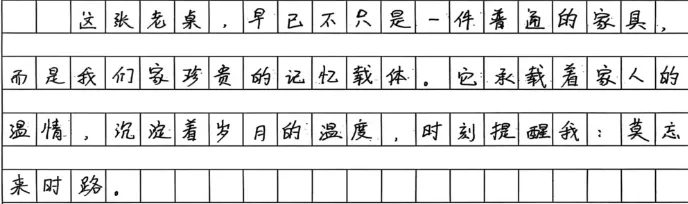 这张老桌，早已不只是一件普通的家具，
而是我们家珍贵的记忆载体。它承载着家人的
温情，沉淀着岁月的温度，时刻提醒我：莫忘
来时路。